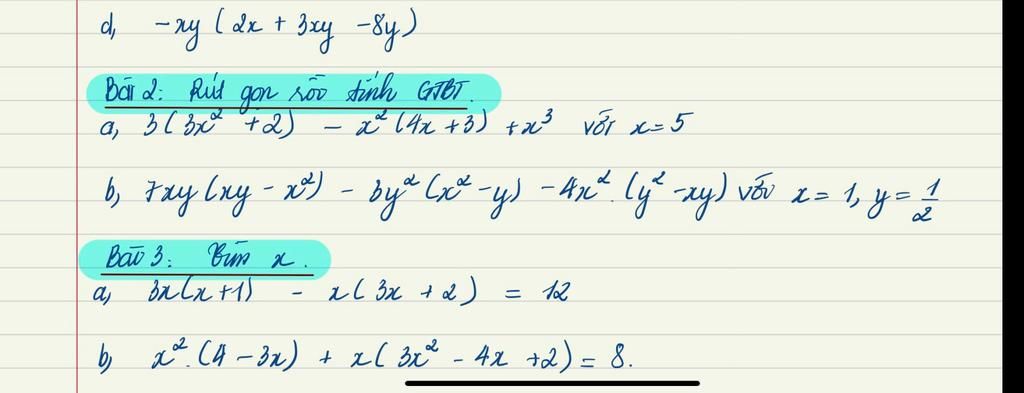 d, -xy (2x + 3xy - 8y)
Bài 2: Rút gọn rồi tính GTBT.
a, 3(3x² + 2) - x²(4x + 3) + x³ với x = 5
b, 7xy(xy - x²) - 3y²(x² - y) - 4x².(y² - xy) với x = 1, y = 1/2
Bài 3: Tìm x.
a, 3x(x + 1) - x(3x + 2) = 12
b, x².(4 - 3x) + x(3x² - 4x + 2) = 8.